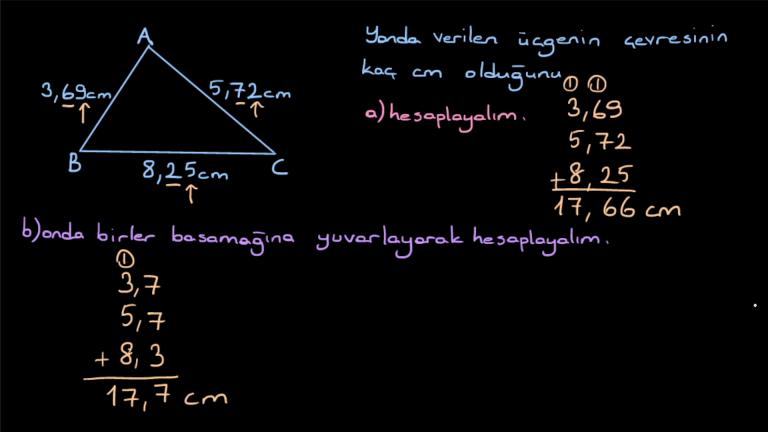 Yanda verilen üçgenin çevresinin
kaç cm olduğunu
a) hesaplayalım.
A
3,69cm
5,72cm
B
8,25cm
C
1 1
3,69
5,72
+8,25
17,66 cm
b) onda birler basamağına yuvarlayarak hesaplayalım.
1
3,7
5,7
+ 8,3
17,7 cm